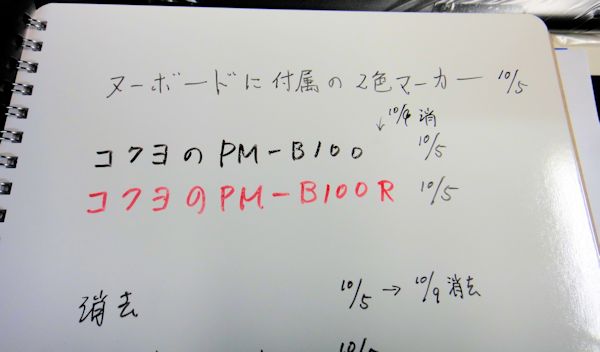 ヌーボードに付属の2色マーカー 10/5
↓10/9 消
コクヨのPM-B100 10/5
コクヨのPM-B100R 10/5
消去 10/5→10/9消去
10/5